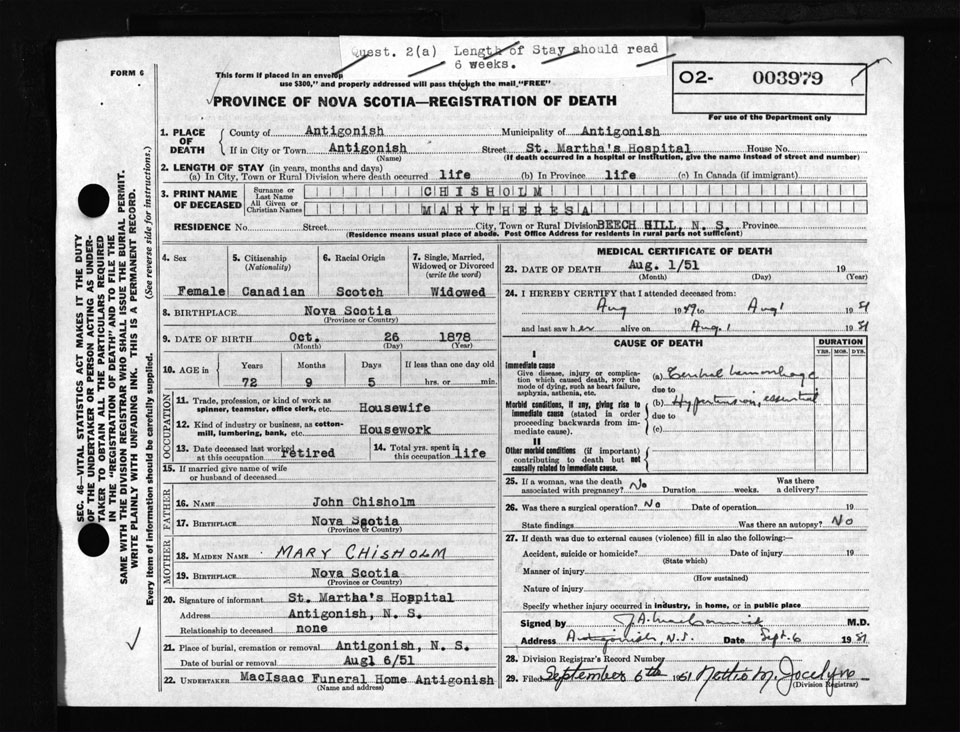 Quest. 2(a) Length of Stay should read
6 weeks.
FORM 6
This form if placed in an envelop
use $300," and properly addressed will pass through the mail "FREE"
O2- 003979
For use of the Department only
PROVINCE OF NOVA SCOTIA—REGISTRATION OF DEATH
1. PLACE OF DEATH
County of Antigonish Municipality of Antigonish
If in City or Town Antigonish Street St. Martha's Hospital House No.
(Name) (If death occurred in a hospital or institution, give the name instead of street and number)
2. LENGTH OF STAY (in years, months and days)
(a) In City, Town or Rural Division where death occurred life (b) In Province life (c) In Canada (if immigrant)
3. PRINT NAME OF DECEASED
Surname or Last Name CHISHOLM
All Given or Christian Names MARYTHERESA
RESIDENCE No. Street City, Town or Rural Division BEECH HILL, N. S. Province
(Residence means usual place of abode. Post Office Address for residents in rural parts not sufficient)
4. Sex Female
5. Citizenship (Nationality) Canadian
6. Racial Origin Scotch
7. Single, Married, Widowed or Divorced (write the word) Widowed
8. BIRTHPLACE Nova Scotia
(Province or Country)
9. DATE OF BIRTH Oct. 26 1878
(Month) (Day) (Year)
10. AGE in Years Months Days If less than one day old
72 9 5 hrs. or min.
OCCUPATION
11. Trade, profession, or kind of work as spinner, teamster, office clerk, etc. Housewife
12. Kind of industry or business, as cotton-mill, lumbering, bank, etc. Housework
13. Date deceased last worked at this occupation retired
14. Total yrs. spent in this occupation life
15. If married give name of wife or husband of deceased
FATHER
16. NAME John Chisholm
17. BIRTHPLACE Nova Scotia
(Province or Country)
MOTHER
18. MAIDEN NAME MARY CHISHOLM
19. BIRTHPLACE Nova Scotia
(Province or Country)
20. Signature of informant St. Martha's Hospital
Address Antigonish, N. S.
Relationship to deceased none
21. Place of burial, cremation or removal Antigonish, N. S.
Date of burial or removal Augl 6/51
22. UNDERTAKER MacIsaac Funeral Home Antigonish
(Name and address)
MEDICAL CERTIFICATE OF DEATH
23. DATE OF DEATH Aug. 1/51 19
(Month) (Day) (Year)
24. I HEREBY CERTIFY that I attended deceased from:
Aug 1949 to Aug 1 1951
and last saw her alive on Aug. 1 1951
CAUSE OF DEATH
DURATION
YRS. MOS. DYS.
I
Immediate cause
Give disease, injury or complication which caused death, NOT the mode of dying, such as heart failure, asphyxia, asthenia, etc.
(a) Cerebral hemorrhage
due to
Morbid conditions, if any, giving rise to immediate cause (stated in order proceeding backwards from immediate cause).
(b) Hypertension, essential
due to
(c)
II
Other morbid conditions (if important) contributing to death but not causally related to immediate cause.
25. If a woman, was the death associated with pregnancy? No Duration weeks. Was there a delivery?
26. Was there a surgical operation? No Date of operation 19
State findings Was there an autopsy? No
27. If death was due to external causes (violence) fill in also the following:—
Accident, suicide or homicide? Date of injury 19
(State which)
Manner of injury
(How sustained)
Nature of injury
Specify whether injury occurred in industry, in home, or in public place
Signed by M.D.
Address Antigonish, N.S. Date Sept. 6 1951
28. Division Registrar's Record Number
29. Filed September 6th 1951 Nettie M. Jocelyn
(Division Registrar)
SEC. 46—VITAL STATISTICS ACT MAKES IT THE DUTY
OF THE UNDERTAKER OR PERSON ACTING AS UNDERTAKER TO OBTAIN ALL THE PARTICULARS REQUIRED
IN THE "REGISTRATION OF DEATH" AND TO FILE THE
SAME WITH THE DIVISION REGISTRAR WHO SHALL ISSUE THE BURIAL PERMIT.
WRITE PLAINLY WITH UNFADING INK. THIS IS A PERMANENT RECORD.
Every item of information should be carefully supplied. (See reverse side for instructions.)